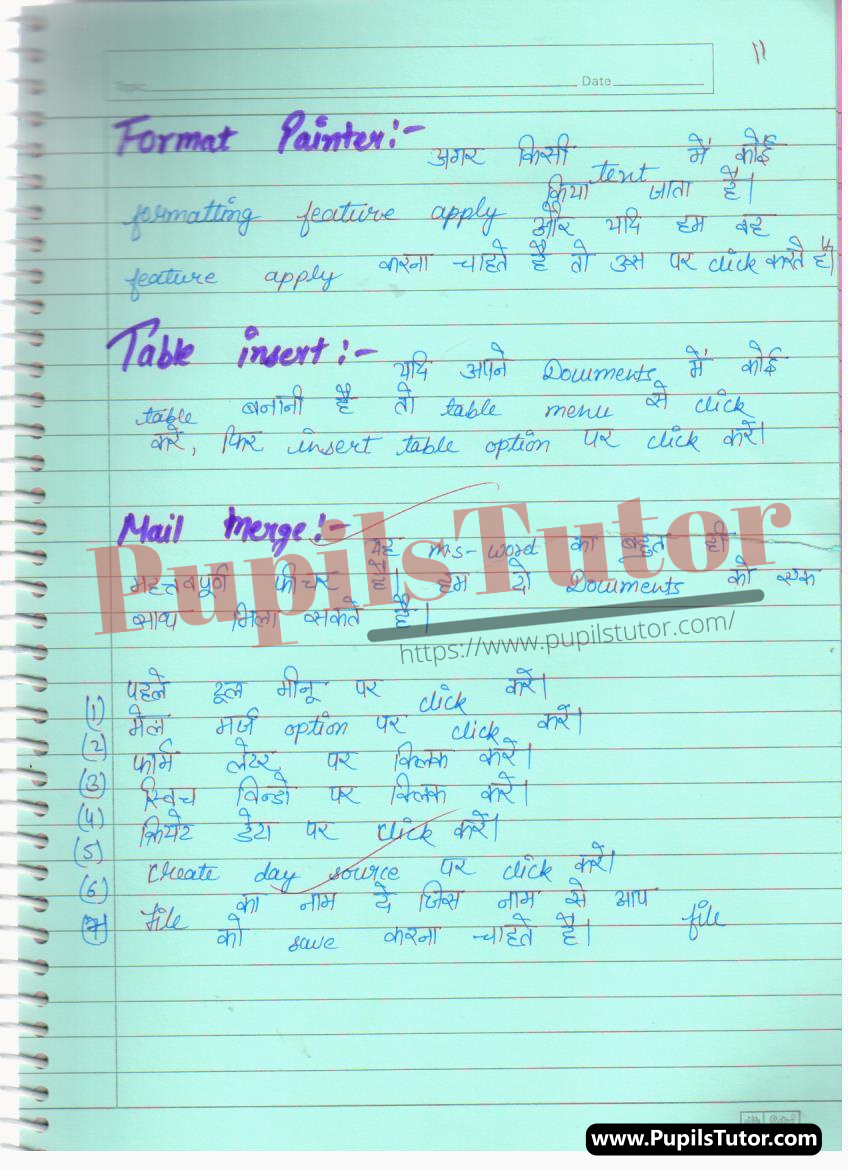 11
Date
Format Painter:-
अगर किसी text में कोई
formatting feature apply किया जाता है।
और यदि हम वह
feature apply करना चाहते है तो उस पर click करते है।
Table insert:-
यदि अपने Documents में कोई
table बनानी है तो table menu से click
करें, फिर insert table option पर click करें।
Mail merge:-
यह ms-word का बहुत ही
महत्तवपूर्ण फीचर है। हम दो Documents को एक
साथ मिला सकते है।
PupilsTutor
https://www.pupilstutor.com/
(1) पहले टूल मीनू पर click करें।
(2) मेल मर्ज option पर click करें।
(3) फॉर्म लेटर, पर क्लिक करें।
(4) स्विच विन्डो पर क्लिक करें।
(5) क्रियेट डेटा पर click करें।
(6) create day source पर click करें।
(7) File का नाम दे जिस नाम से आप file
को save करना चाहते है।
www.PupilsTutor.com